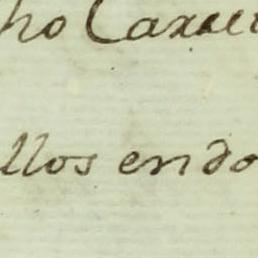 ho Caxue
llos endo